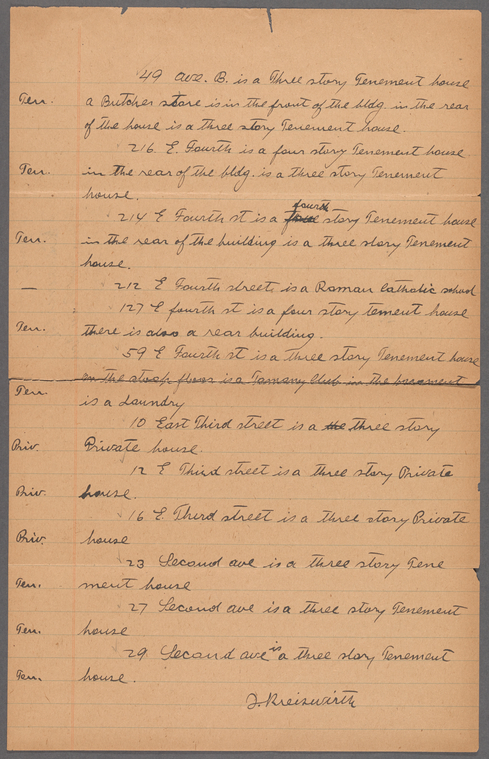 49 Ave. B. is a Three story Tenement house
Ten. a Butcher store is in the front of the bldg. in the rear
of the house is a three story Tenement house.
216 E. Fourth is a four story Tenement house
Ten. in the rear of the bldg. is a three story Tenement
house.
fourth
214 E Fourth st is a story Tenement house
Ten. in the rear of the building is a three story Tenement
house.
— 212 E Fourth streets is a Roman Catholic school
127 E fourth st is a four story tement house
Ten. there is also a rear building.
59 E Fourth st is a three story Tenement house
on the stoop floor is a Tamany Club in the basement
Ten. is a Laundry
10 East Third street is a the three story
Priv. Private house.
12 E Third street is a three story Private
Priv. house.
16 E. Third street is a three story Private
Priv. house
23 Second ave is a three story Tene
Ten. ment house
27 Second ave is a three story Tenement
Ten. house
is
29 Second ave a three story Tenement
Ten. house.
J. Kreiswirth